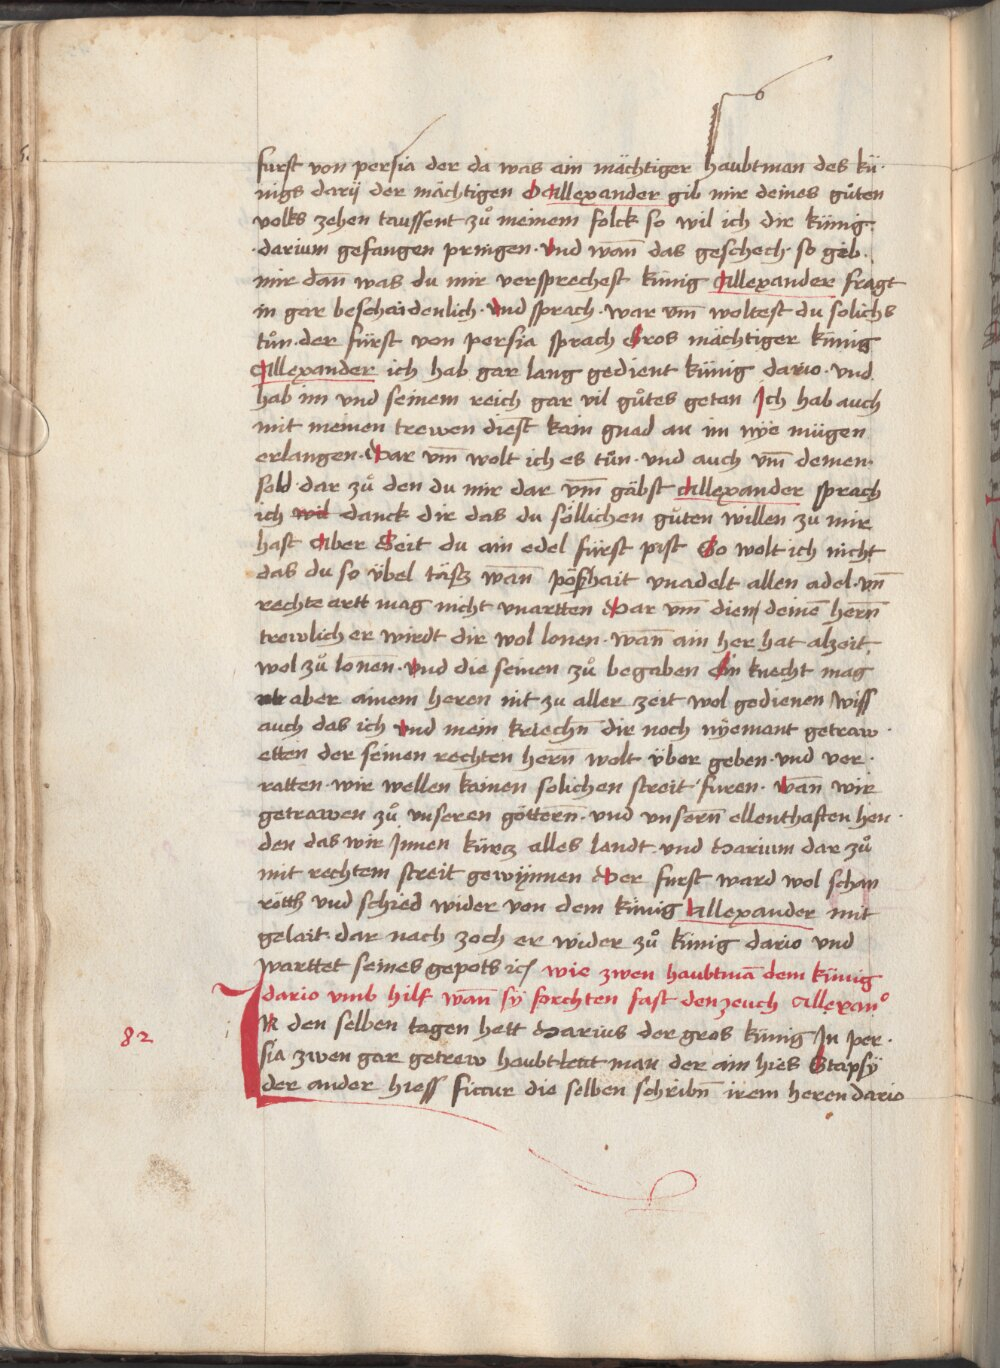 furst von persia der da was ain mächtiger haubtman des kü·
nigs darij der mächtigen O Allexander gib mir deines gůten
volks zehen taussent zů meinem folck so wil ich dir künig·
·darium gefangen pringen· Vnd wañ das geschech· so gib·
mir dañ was du mir versprechest künig Allexander fragt
in gar beschaidenlich· Vnd sprach· war vm̄ woltest du solichs
tůn· der fürst von persia sprach Gros mächtiger künig
Allexander ich hab gar lang gedient künig dario· vnd
hab im vnd seinem reich gar vil gůtes getan Ich hab auch
mit meinen trewen dīest kain gnad an im nye mügen
erlangen· Dar vm̄ wolt ich es tůn· vnd auch vm̄ deinen·
sold· dar zů den du mir dar vm̄ gäbst Allexander sprach
ich wil danck dir das du söllichen gůten willen zu mir
hast Aber Seit du ain edel fürst pist So wolt ich nicht
das du so übel tätst wañ poßhait vnadelt allen adel· vn̄
rechte artt mag nicht vnartten Dar vm̄ dien deinē herñ
trewlich er wirdt dir wol lonen· wañ ain her hat alzeit
wol zů lonen· vnd die seinen zů begaben Ein knecht mag
aber ainem heren nit zu aller zeit wol gedienen Wiss
auch das ich vnd mein kriechñ dir noch nÿemant getraw·
etten der seinen rechten herñ wolt über geben· vnd ver·
ratten· wir wellen kainen solichen streit furen· Wañ wir
getrawen zů vnseren götterñ· vnd vnserñ ellenthaften hen·
den das wir Innen kürtz alles landt· vnd Darium dar zů
mit rechtem streit gewÿnnen Der furst ward wol scham
rötth vnd schied wider von dem künig Allexander mit
gelait· dar nach zoch er wider zů künig dario vnd
warttet seines gepots wie zwen haubtmā dem künig
dario vmb hilf wañ sÿ forchten fast den zeuch Allexan°
IN den selben tagen hett Darius der gros künig In per·
82 sia zwen gar getrew haubtleut man der ain hies Stapsÿ
der ander hiess fictur die selben schribñ irem heren dario